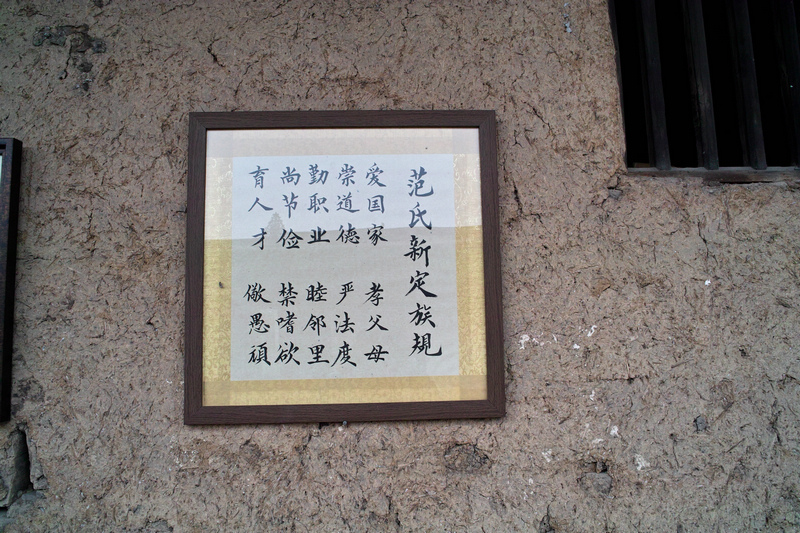 范氏新定族規
爱国家 孝父母
崇道德 严法度
勤职业 睦邻里
尚节俭 禁嗜欲
育人才 儆愚頑